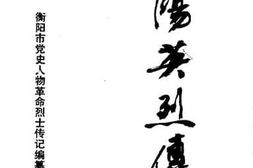 陽英烈傳
衡阳市党史人物革命烈士传记编纂